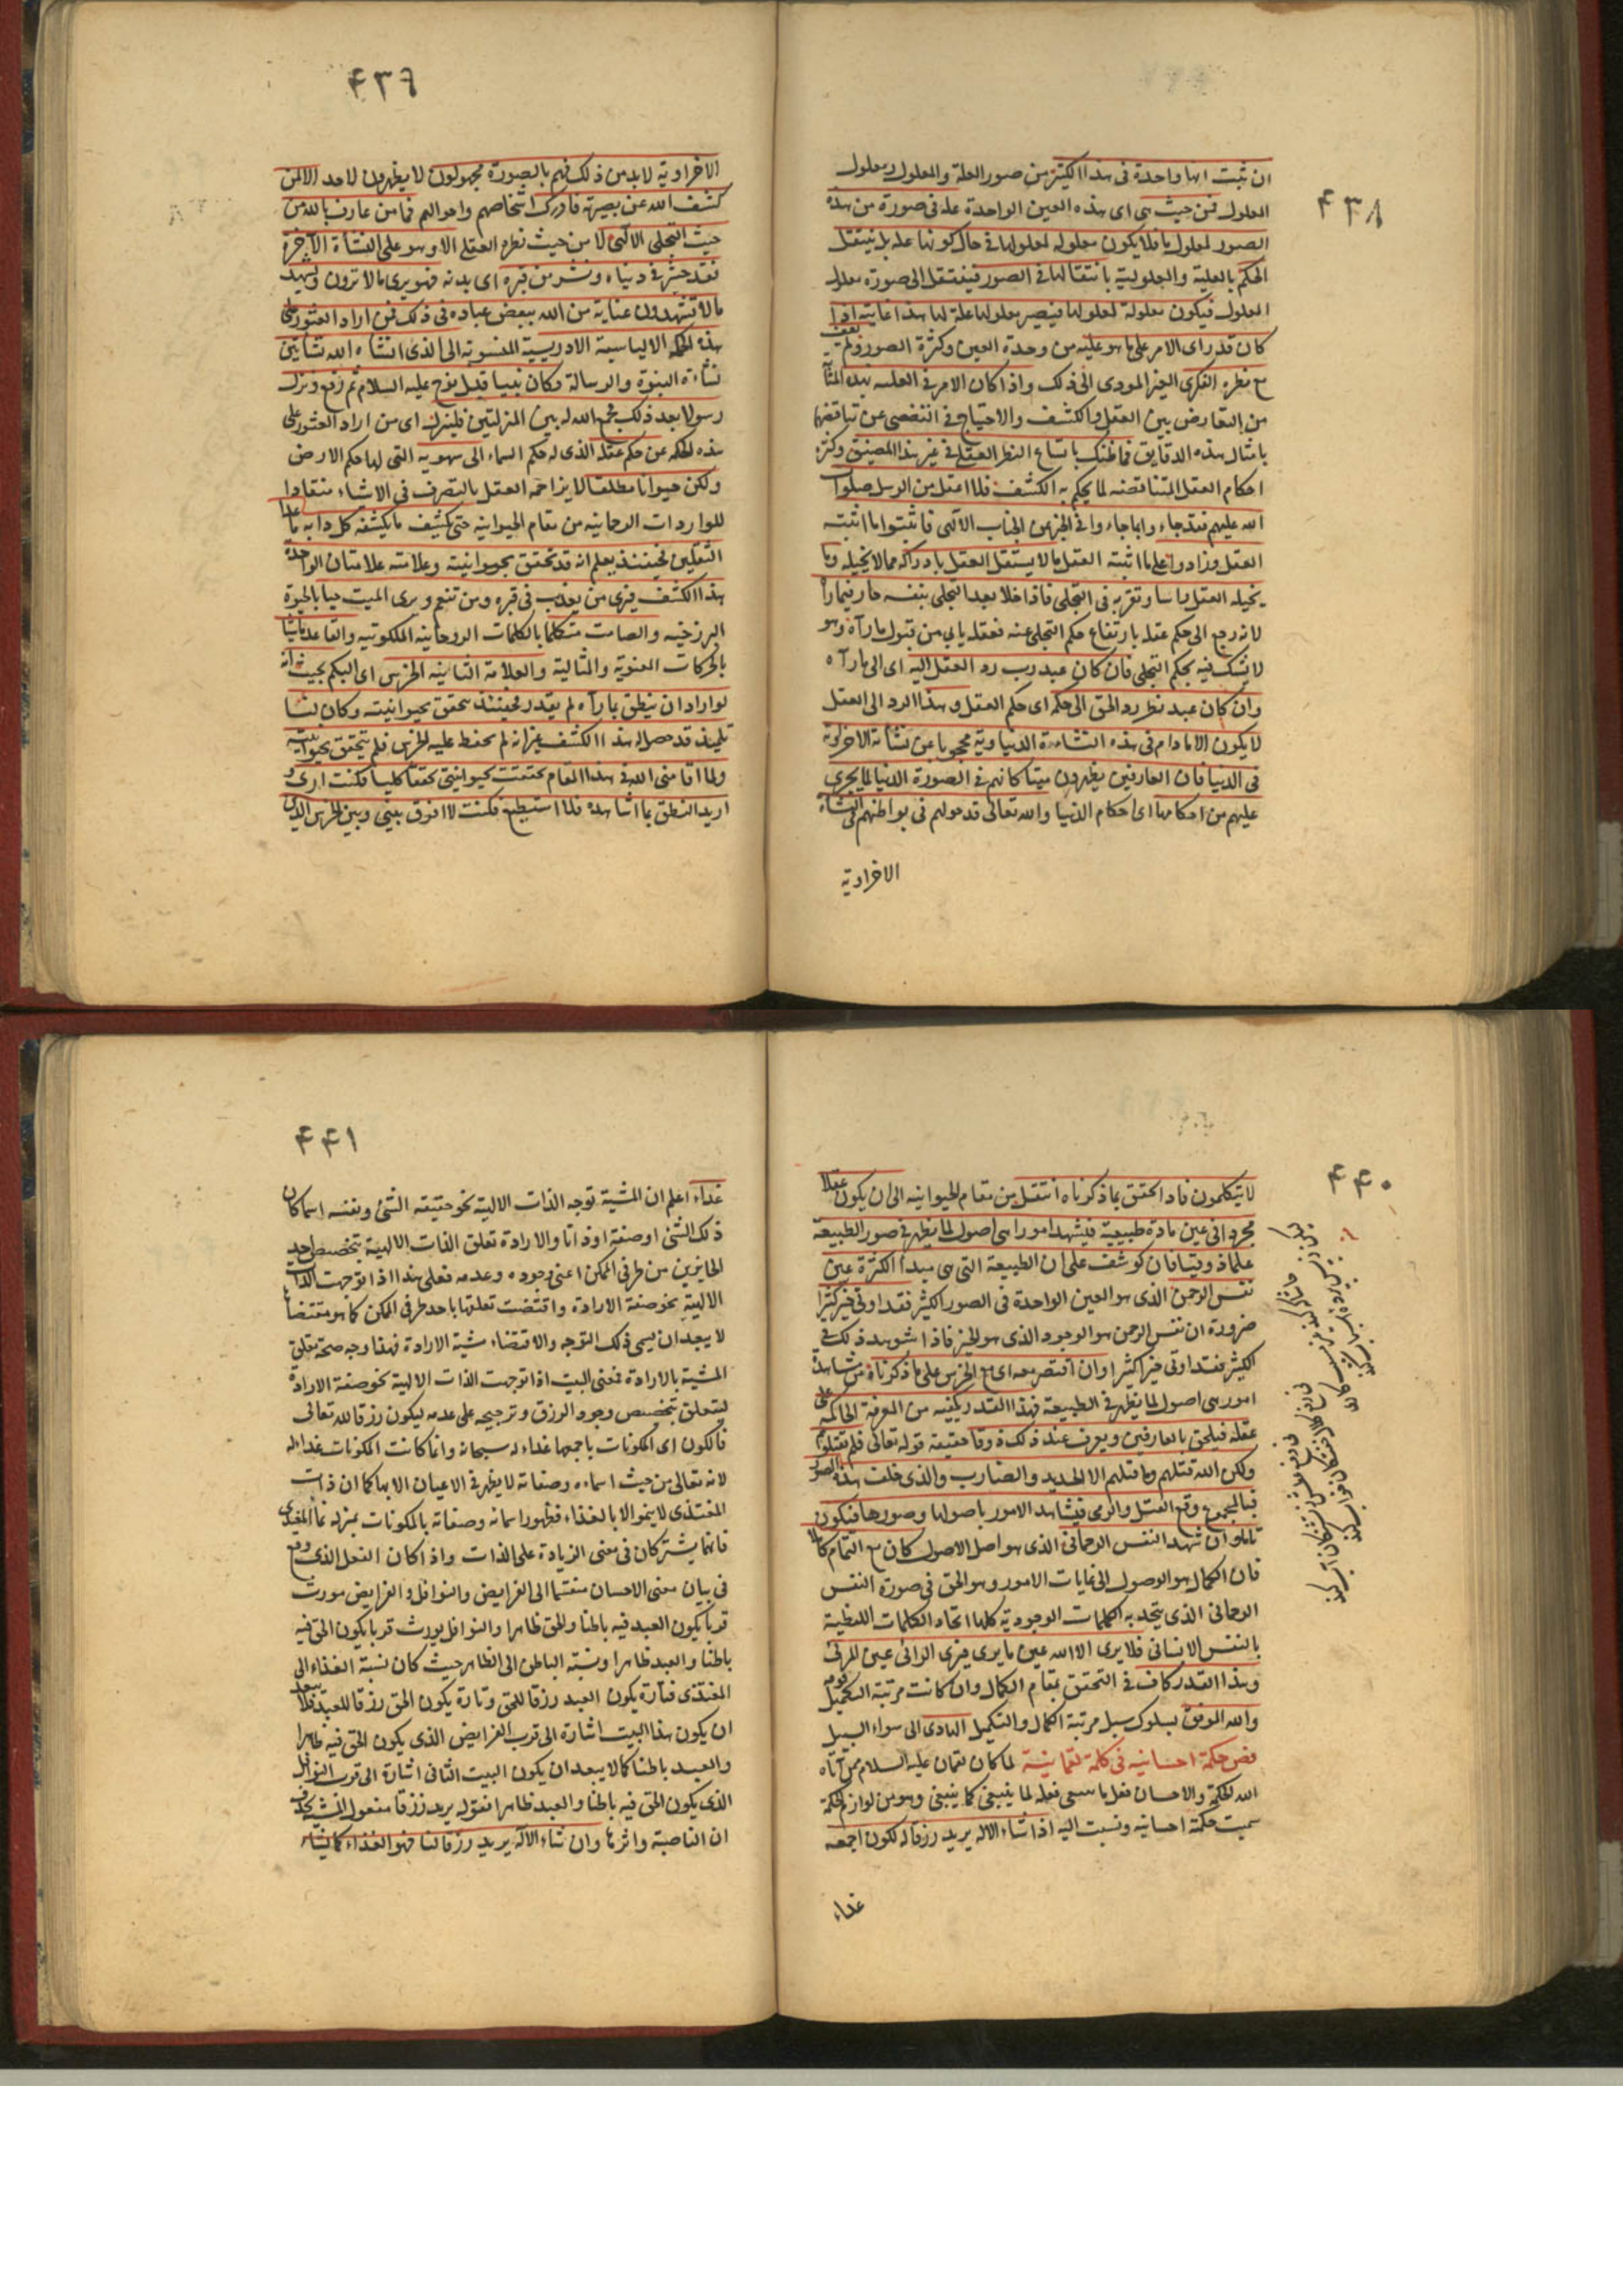 ٤٣٨
ان ثبت انها واحدة فى هذا الكثير من صور العلة والمعلول ومعلول
المعلول فمن حيث هى اى هذه العين الواحدة علة فى صورة من هذه
الصور لمعلول ما فلا يكون معلوله لمعلولها فى حال كونها علة بل ينتقل
الحكم بالعلية والمعلولية بانتقالها فى الصور فينتقل الى صورة معلول
المعلول فيكون معلولة لمعلولها فيصير معلولها علة لها هذا غايته اذا
كان قد راى الامر على ما هو عليه من وحدة العين وكثرة الصور ولم يقف
مع نظره الفكرى الغير المودى الى ذلك واذا كان الامر فى العلية بهذه المثابة
من التعارض بين العقل والكشف والاحتياج فى التفصى عن تناقضها
بامثال هذه الدقايق فما ظنك باتساع النظر العقلى فى غير هذا المضيق وكثرة
احكام العقل المتناقضه لما يحكم به الكشف فلا اعقل من الرسل صلوات
الله عليهم فقد جاءوا بما جاءوا فى الخبر من الجناب الالهى فاثبتوا ما اثبته
العقل وزادوا على ما اثبته العقل ما لا يستقل العقل بادراكه مما لا يخيله وما
يخيله العقل راسا ويقر به فى التجلى فاذا خلا بعد التجلى بنفسه حار فيما رآ
لانه رجع الى حكم عقله بارتفاع حكم التجلى عنه فعقله يابى من قبول ما رآه وهو
لا يشك فيه بحكم التجلى فان كان عبد رب رد العقل اليه اى الى ما رآه
وان كان عبد نظر رد الحق الى حكمه اى حكم العقل وهذا الرد الى العقل
لا يكون الا ما دام فى هذه النشاءة الدنياوية محجوبا عن نشاته الاخراوية
فى الدنيا فان العارفين يظهرون هنا كانهم فى الصورة الدنيا لما يجرى
عليهم من احكامها اى احكام الدنيا والله تعالى قد حولهم فى بواطنهم فى النشاة
الاخراوية
٤٣٩
الاخراوية لا بد من ذلك فهم بالصورة مجهولون لا يظهرون لاحد الا لمن
كشف الله عن بصيرته فادرك اشخاصهم واحوالهم فما من عارف بالله من
حيث التجلى الالهى لا من حيث نظره العقلى الا وهو على النشأة الآخرة
فقد حشر فى دنياه ونشر من قبره اى بدنه فهو يرى ما لا ترون ويشهد
ما لا تشهدون عناية من الله ببعض عباده فى ذلك فمن اراد العثور على
هذه الحكمة الالياسية الادريسية المنسوبة الى الذى انشاه الله نشأتين
نشأة النبوة والرسالة وكان نبيا قبل نوح عليه السلام ثم رفع ونزل
رسولا بعد ذلك فجمع الله له بين المنزلتين فلينزل اى من اراد العثور على
هذه الحكمة عن حكم عقله الذى له حكم السماء الى شهوته التى لها حكم الارض
وليكن حيوانا مطلقا لا يزاحمه العقل بالتصرف فى الاشياء منقادا
للواردات الرحانيه من مقام الحيوانية حتى يكشف ما يكشفه كل دابه ما عدا
الثقلين فحينئذ يعلم انه قد تحقق بحيوانيته وعلامته علامتان الواحدة
هذا الكشف فيرى من يعذب فى قبره ومن تنعم ويرى الميت حيا بالحيوة
البرزخيه والصامت متكلما بالكلمات الروحانية الملكوتيه والقاعد ماشيا
بالحركات المعنوية والمثالية والعلامة الثانيه الخرس اى البكم بحيث انه
لو اراد ان ينطق بما رآه لم يقدر فحينئذ تحقق بحيوانيته وكان لنا
تلميذ قد حصل له هذا الكشف غير انه لم يحفظ عليه الخرس فلم يتحقق بحيوانيته
ولما اقامنى الله فى هذا المقام تحققت بحيوانيتى تحققا كليا فكنت ارى و
اريد النطق بما اشاهده فلا استطيع فكنت لا افرق بينى وبين الخرس الذين
٤٤٠
لا يتكلمون فاذا تحقق بما ذكرناه انتقل من مقام الحيوانيه الى ان يكون عقلا
مجردا فى عين مادة طبيعية فيشهد امورا هى اصول لما يظهر فى صور الطبيعه
علما ذوقيا فان كوشف على ان الطبيعة التى هى مبدا الكثرة عين
نفس الرحمن الذى هو العين الواحدة فى الصور الكثير فقد اوتى خيرا كثيرا
ضرورة ان نفس الرحمن هو الوجود الذى هو الخير فاذا شوهد ذلك فى
الكثير فقد اوتى خيرا كثيرا وان اقتصر معه اى مع الخرس على ما ذكرناه من مشاهدة
امور هى اصول لما يظهر فى الطبيعة فهذا القدر يكفيه من المعرفة الحاكمة على
عقله فيلحق بالعارفين ويعرف عند ذلك ذوقا حقيقة قوله تعالى فلم تقتلوهم
ولكن الله قتلهم وما قتلهم الا الحديد والضارب والذى خلف هذه الصور
فبالمجموع وقع القتل والرمى فيشاهد الامور باصولها وصورها فيكون
تاما وان شهد النفس الرحمانى الذى هو اصل الاصول كان مع التمام كاملا
فان الكمال هو الوصول الى غايات الامور وهو الحق فى صورة النفس
الرحمانى الذى يتحد به الكلمات الوجودية كلها اتحاد الكلمات اللفظية
بالنفس الانسانى فلا يرى الا الله عين ما يرى فيرى الرائى عين المرئى
وهذا القدر كاف فى التحقق بمقام الكمال وان كانت مرتبة التكميل فوقه
والله الموفق بسلوك سبل مرتبة الكمال والتكميل الهادى الى سواء السبيل
فص حكمة احسانيه فى كلمة لقمانية لما كان لقمان عليه السلام ممن آتاه
الله الحكمة والاحسان فعل ما ينبغى فعله لما ينبغى كما ينبغى وهو من لوازم الحكمة
سميت حكمة احسانيه ونسبت اليه اذا شاء الاله يريد رزقا له فالكون اجمعه
غذاء
٤٤١
غذاء اعلم ان المشية توجه الذات الالهية نحو حقيقة الشئ ونفسه اسما كان
ذلك الشئ او صفة او ذاتا والارادة تعلق الذات الالهية بتخصيص احد
الجايزين من طرفى الممكن اعنى وجوده وعدمه فعلى هذا اذا توجهت الذات
الالهية نحو صفة الارادة واقتضت تعلقها باحد طرفى الممكن كما هو مقتضاها
لا يبعد ان يسمى ذلك التوجه والاقتضاء مشية الارادة فهذا وجه صحة تعلق
المشية بالارادة فمعنى البيت اذا توجهت الذات الالهية نحو صفة الارادة
ليتعلق بتخصيص وجود الرزق وترجيحه على عدمه ليكون رزقا لله تعالى
فالكون اى المكونات باجمعها غذاء له سبحانه وانما كانت المكونات غذاء له
لانه تعالى من حيث اسماءه وصفاته لا يظهر فى الاعيان الا بها كما ان ذات
المغتذى لا ينمو الا بالغذاء فظهور اسمائه وصفاته بالمكونات بمنزلة نماء المغتذى
فانهما يشتركان فى معنى الزيادة على الذات واذا كان الفعل الذى وقع
فى بيان معنى الاحسان منقسما الى الفرايض والنوافل والفرايض مورث
قربا يكون العبد فيه باطنا والحق ظاهرا والنوافل يورث قربا يكون الحق فيه
باطنا والعبد ظاهرا ونسبة الباطن الى الظاهر حيث كان نسبة الغذاء الى
المغتذى فتارة يكون العبد رزقا للحق وتارة يكون الحق رزقا للعبد فلا يبعد
ان يكون هذا البيت اشارة الى قرب الفرايض الذى يكون الحق فيه ظاهرا
والعبد باطنا كما لا يبعد ان يكون البيت الثانى اشارة الى قرب النوافل
الذى يكون الحق فيه باطنا والعبد ظاهرا فقوله يريد رزقا مفعول المشية بحذف
ان الناصبة واثرها وان شاء الاله يريد رزقا لنا فهو الغذاء كما يشاء